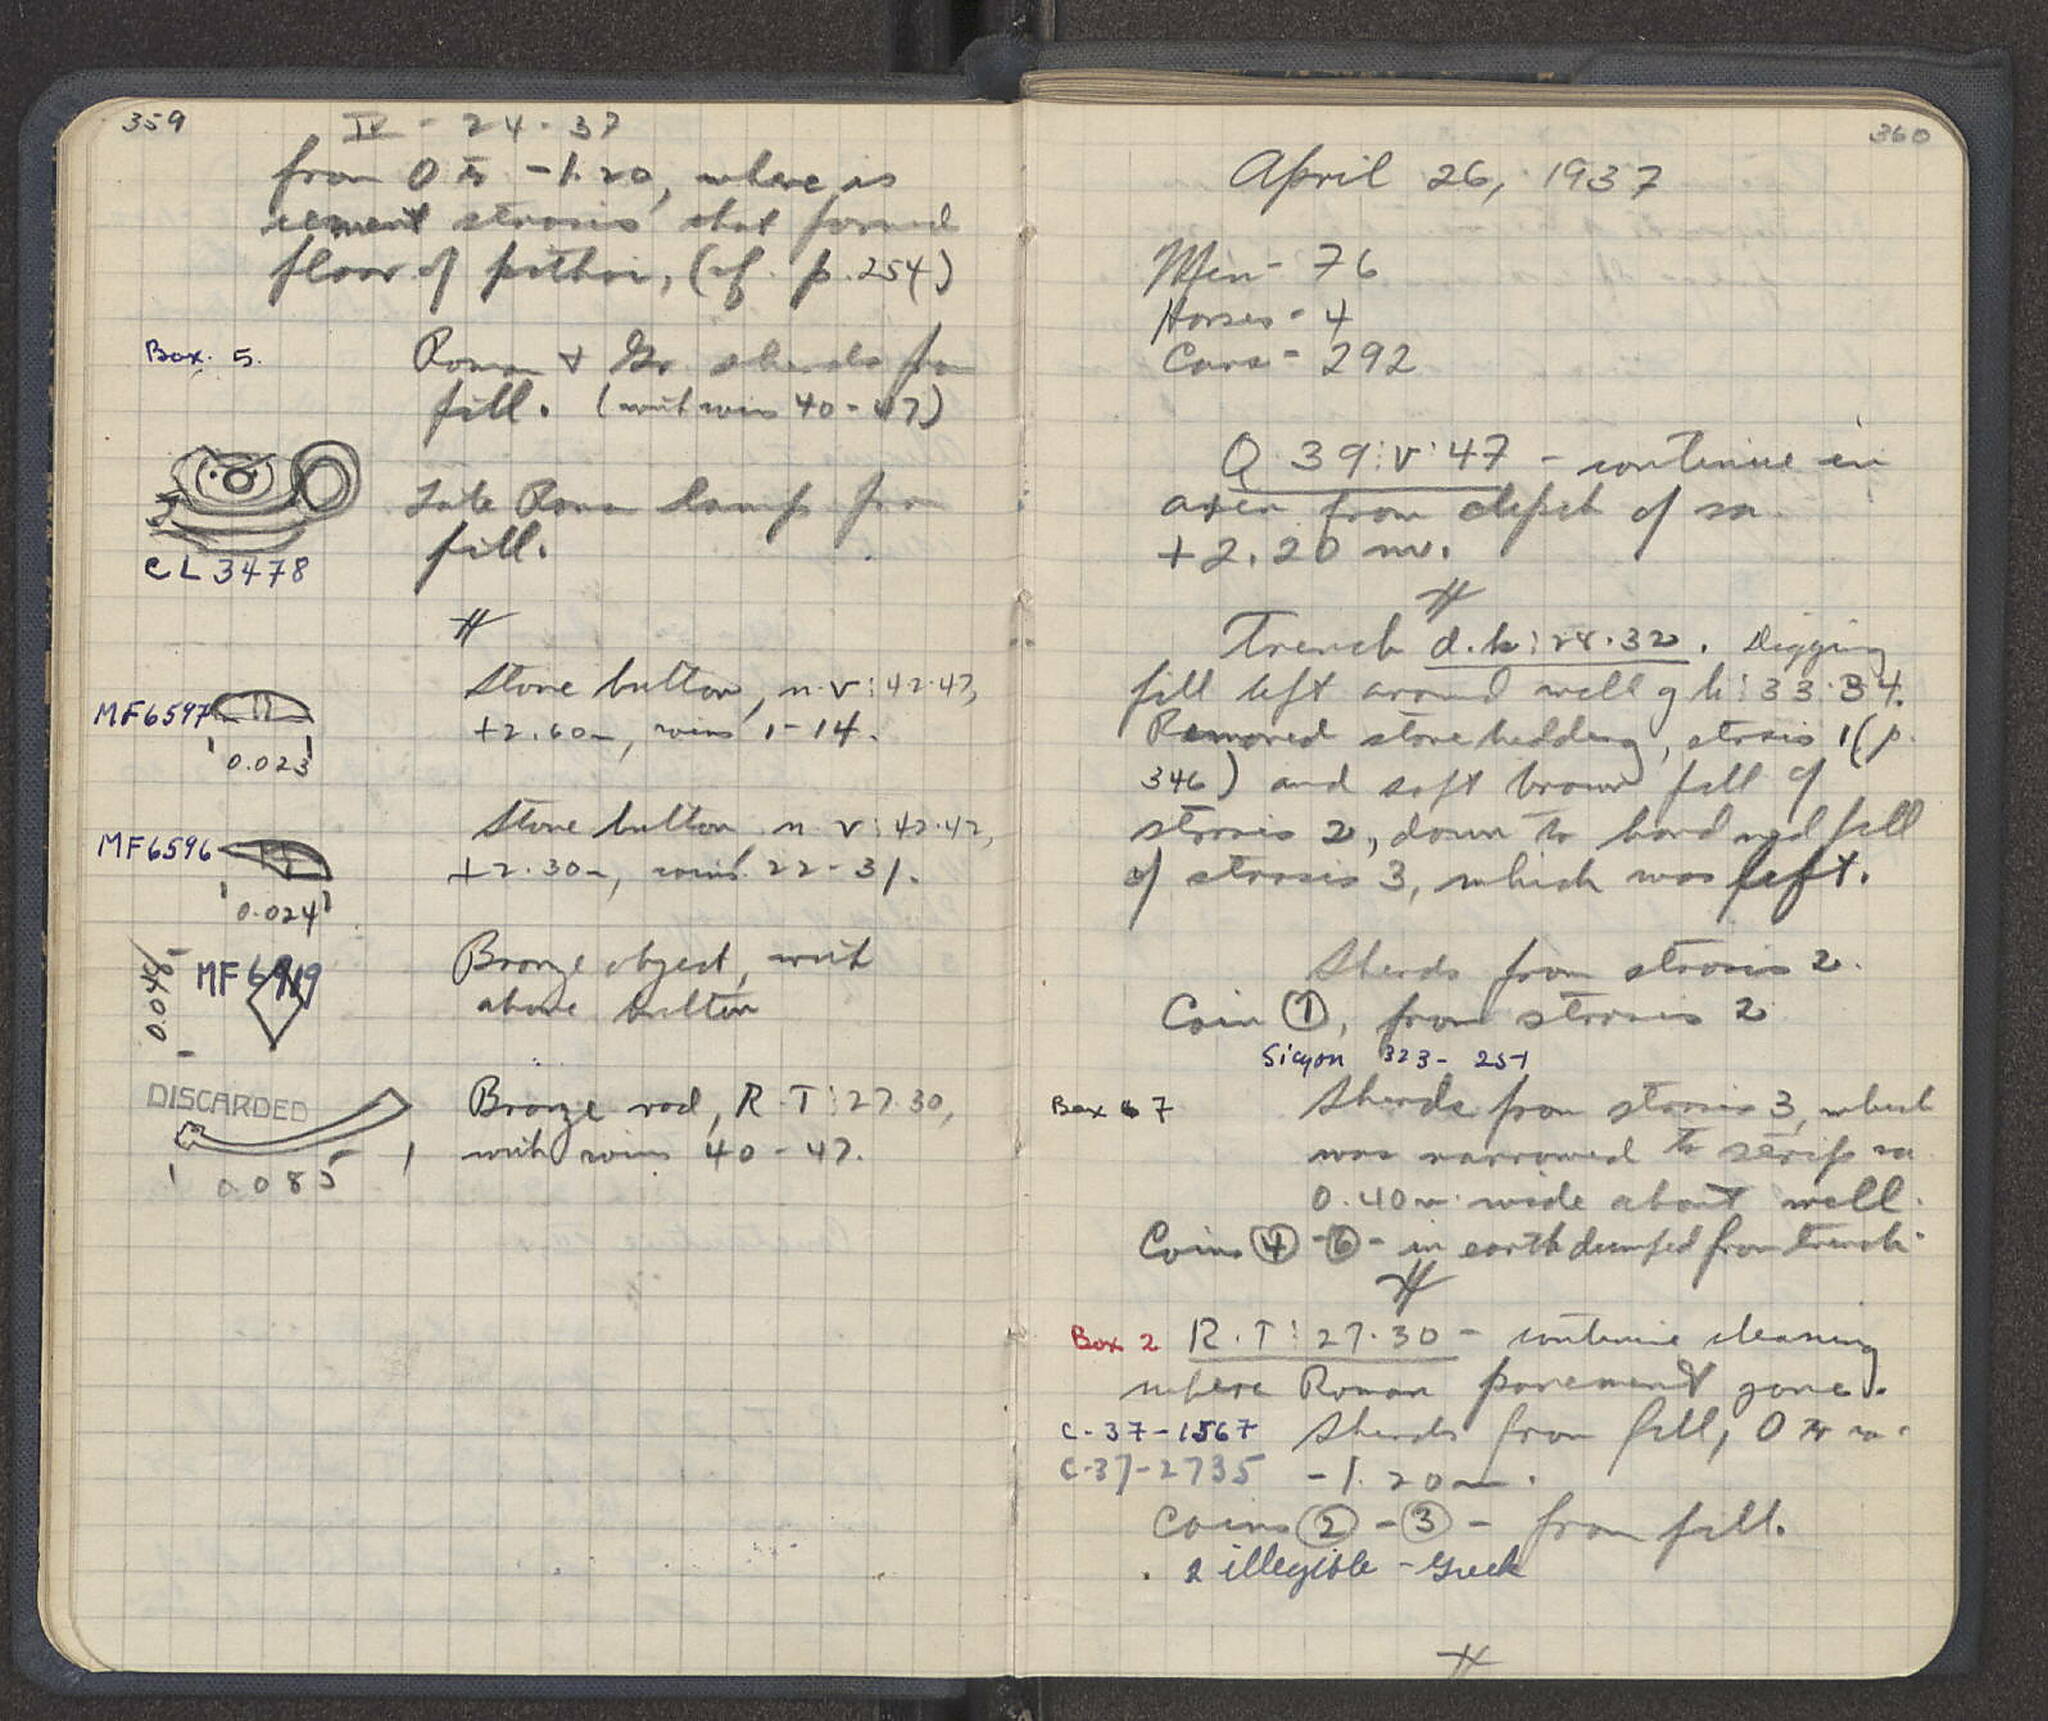 359
IV - 24 - 37
from 0 to -1.20, where is
cement strosis that formed
floor of pithoi, (cf. p. 254)
Box. 5.
Roman + Gr. sherds from
fill. (with coins 40-47)
Late Roman lamp from
fill.
CL 3478
#
MF 6597
Stone button, n-v: 42-47,
+2.60m, coins 1-14.
0.023
MF 6596
Stone button, n-v: 42-47,
+2.30m, coins 22-31.
0.024
0.048
MF 6919
Bronze object, with
above button
DISCARDED
Bronze rod, R-T: 27-30,
with coins 40-47.
0.085
360
April 26, 1937
Men - 76
Horses - 4
Cars - 292
Q 39: V 47 - continue in
area from depth of ca
+2.20 m.
#
Trench d-k: 28-32. Digging
fill left around well g h: 33-34.
Removed stone bedding, strosis 1 (p.
346) and soft brown fill of
strosis 2, down to hard red fill
of strosis 3, which was left.
Sherds from strosis 2.
Coin 1, from strosis 2
Sicyon 323-251
Box 6 7
Sherds from strosis 3, which
was narrowed to strip ca
0.40m wide about well.
Coins 4 - 6 - in earth dumped from trench.
#
Box 2 R-T: 27-30 - continue cleaning
where Roman pavement gone.
C-37-1567 Sherds from fill, 0 to ca.
C-37-2735 -1.20m.
Coins 2 - 3 - from fill.
2 illegible - Greek
#